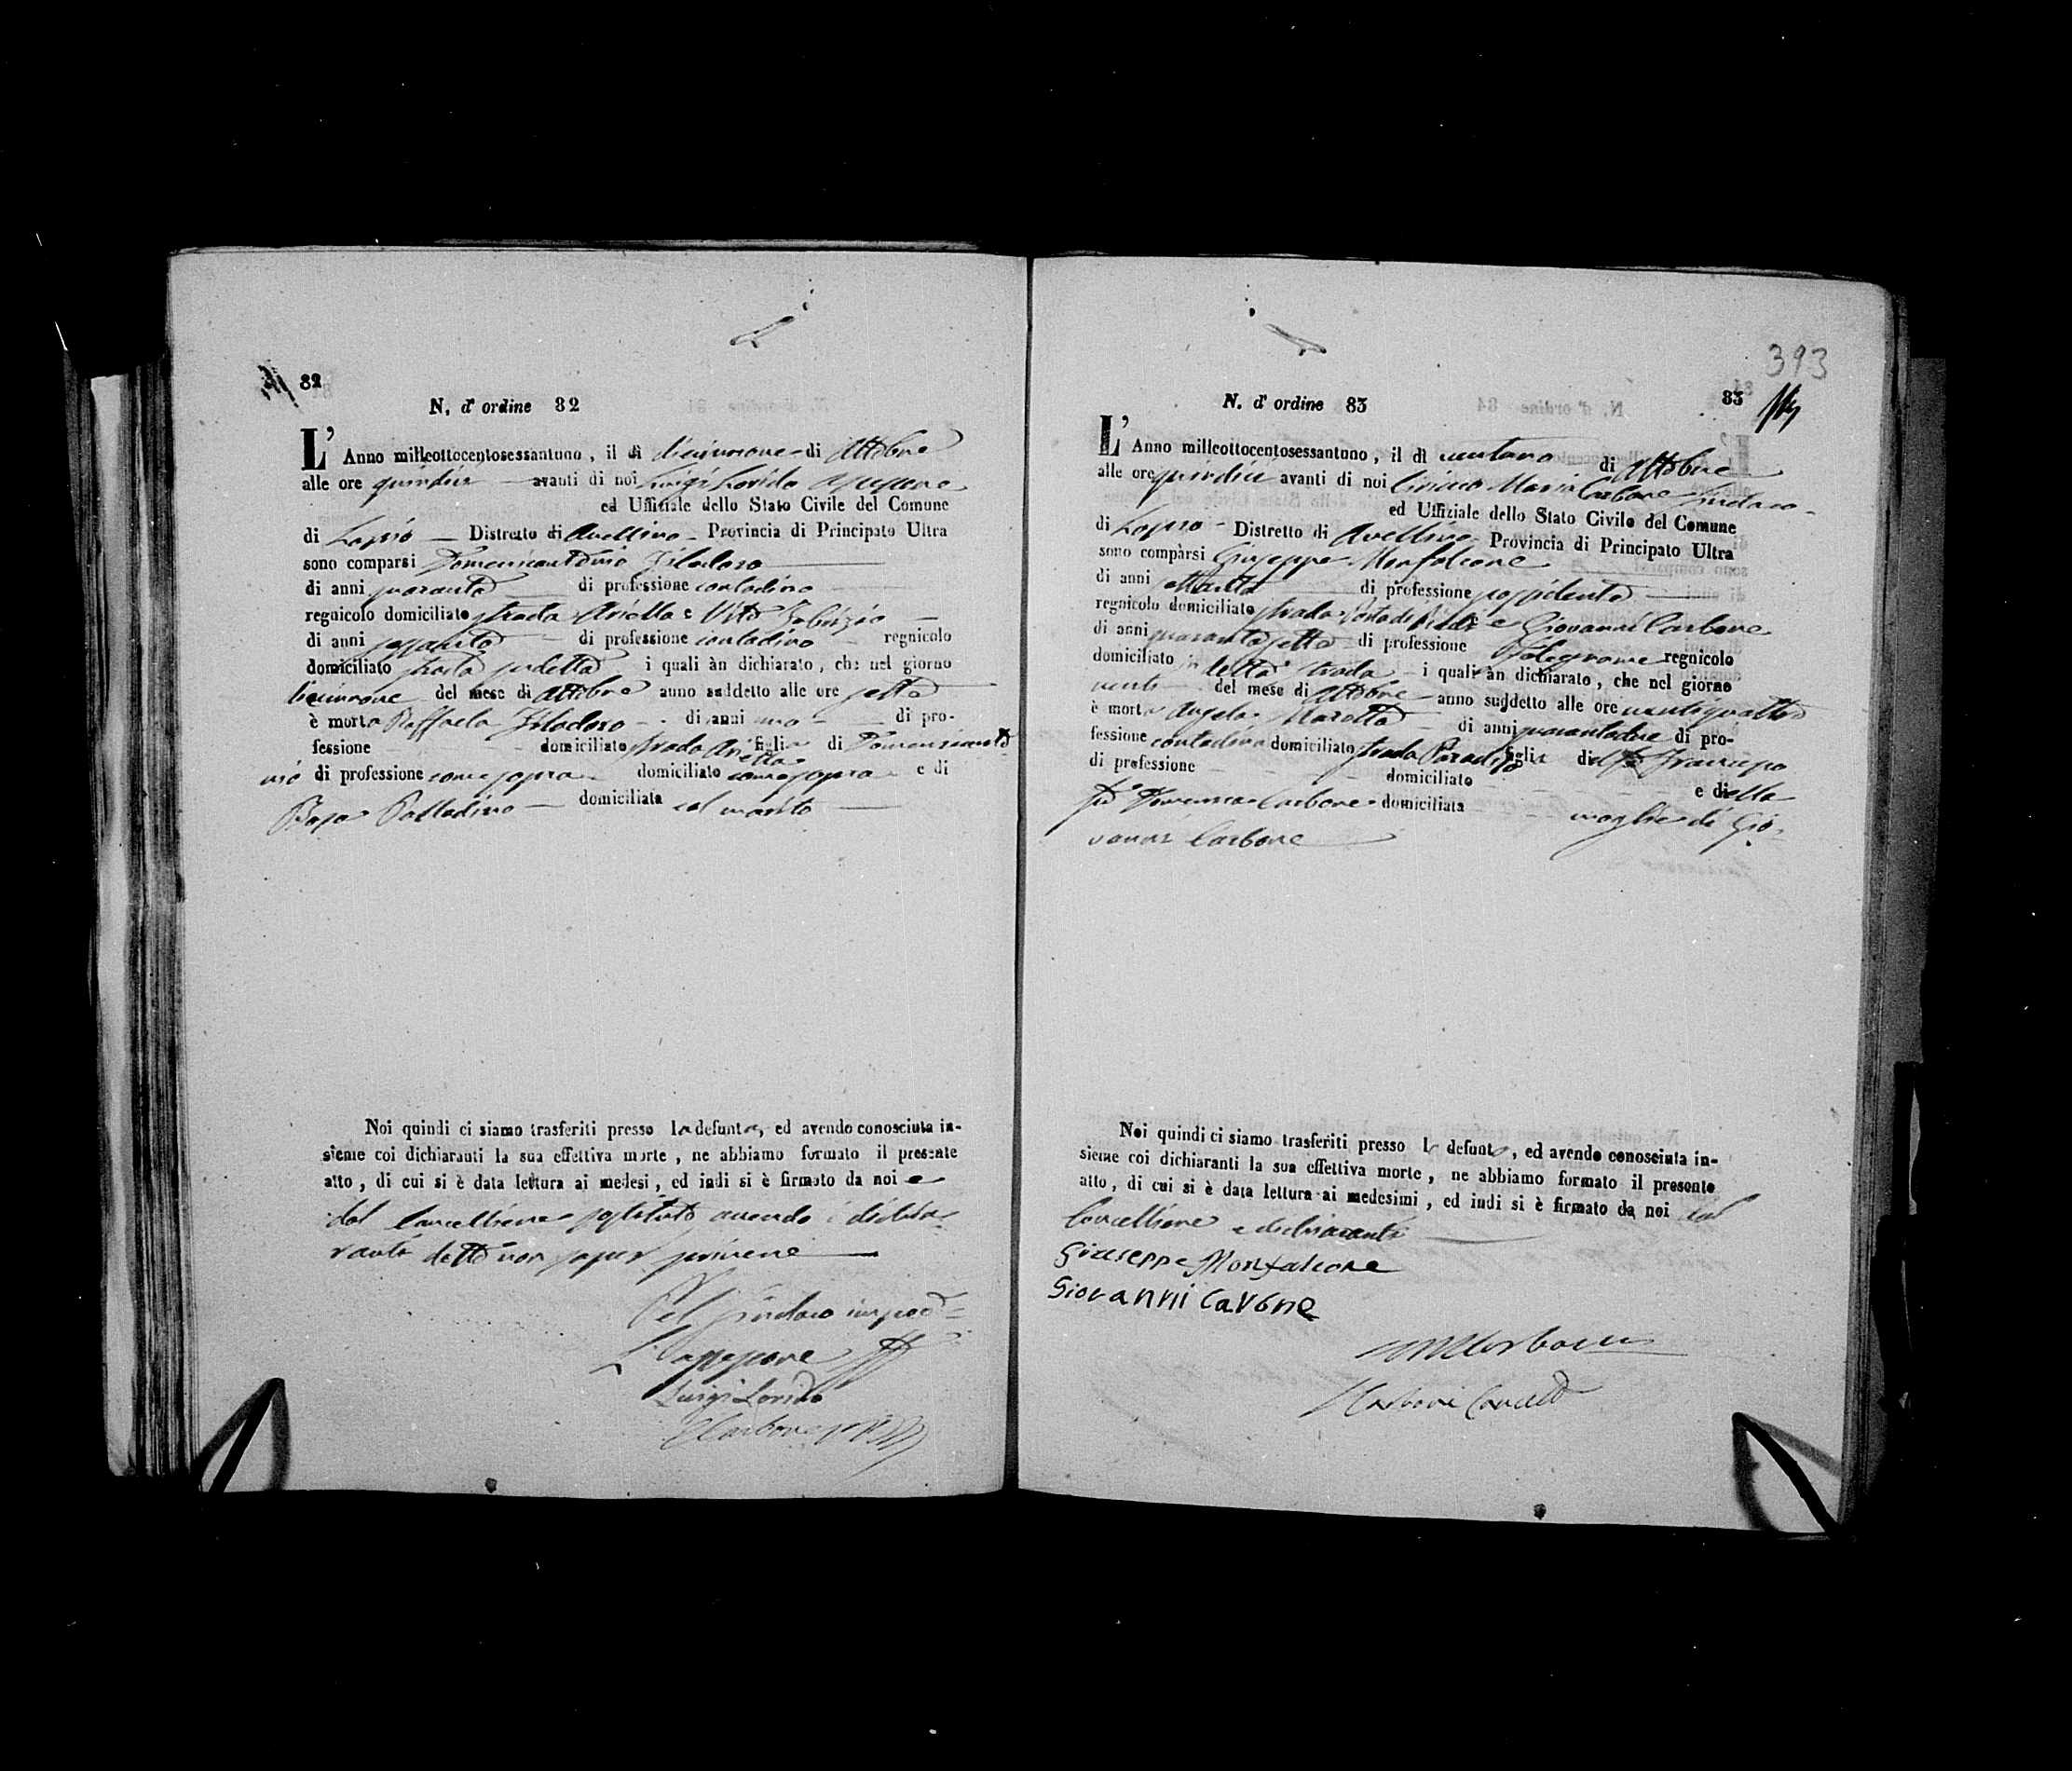 82
N. d' ordine 82
L' Anno milleottocentosessantuno, il dì diciannove di Ottobre
alle ore quindici avanti di noi Luigi Lorido Assessore
ed Uffiziale dello Stato Civile del Comune
di Lapio Distretto di Avellino Provincia di Principato Ultra
sono comparsi Domenicantonio Filadoro
di anni quaranta di professione contadino
regnicolo domiciliato strada Ariella e Vito Fabrizio
di anni sessanta di professione contadino regnicolo
domiciliato strada sudetta i quali àn dichiarato, che nel giorno
diciannove del mese di Ottobre anno suddetto alle ore sette
è morta Raffaela Filadoro di anni uno di pro-
fessione domiciliato strada Ariella figlia di Domenicanto
nio di professione come sopra domiciliato come sopra e di
Rosa Palladino domiciliata col marito
Noi quindi ci siamo trasferiti presso la defunta, ed avendo conosciuta in-
sieme coi dichiaranti la sua effettiva morte, ne abbiamo formato il presente
atto, di cui si è data lettura ai medesi, ed indi si è firmato da noi e
dal Cancelliere sostituto avendo i dichia
ranti detto non saper scrivere
Pel Sindaco imped
L'assessore
Luigi Lorido
Carbone
393
83
N. d' ordine 83
L' Anno milleottocentosessantuno, il dì ventuno di Ottobre
alle ore quindici avanti di noi Ciriaco Maria Carbone Sindaco
ed Uffiziale dello Stato Civile del Comune
di Lapio Distretto di Avellino Provincia di Principato Ultra
sono comparsi Giuseppe Monfalcone
di anni ottanta di professione possidente
regnicolo domiciliato strada Porta di Piedi e Giovanni Carbone
di anni quarantasette di professione Falegname regnicolo
domiciliato in detta strada i quali àn dichiarato, che nel giorno
venti del mese di Ottobre anno suddetto alle ore ventiquattro
è morta Angela Marotta di anni quarantadue di pro-
fessione contadina domiciliato strada Paradiso figlia di
di professione domiciliato e della
fu Domenica Carbone domiciliata moglie di Gio
vanni Carbone
Noi quindi ci siamo trasferiti presso la defunta, ed avendo conosciuta in-
sieme coi dichiaranti la sua effettiva morte, ne abbiamo formato il presente
atto, di cui si è data lettura ai medesimi, ed indi si è firmato da noi dal
Cancelliere e dichiaranti
Giuseppe Monfalcone
Giovanni Carbone
CMCarbone
Carbone Cancell